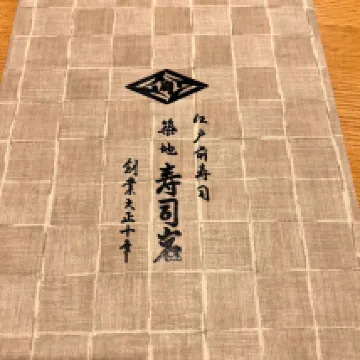 江戸前寿司
築地寿司岩
創業大正十年